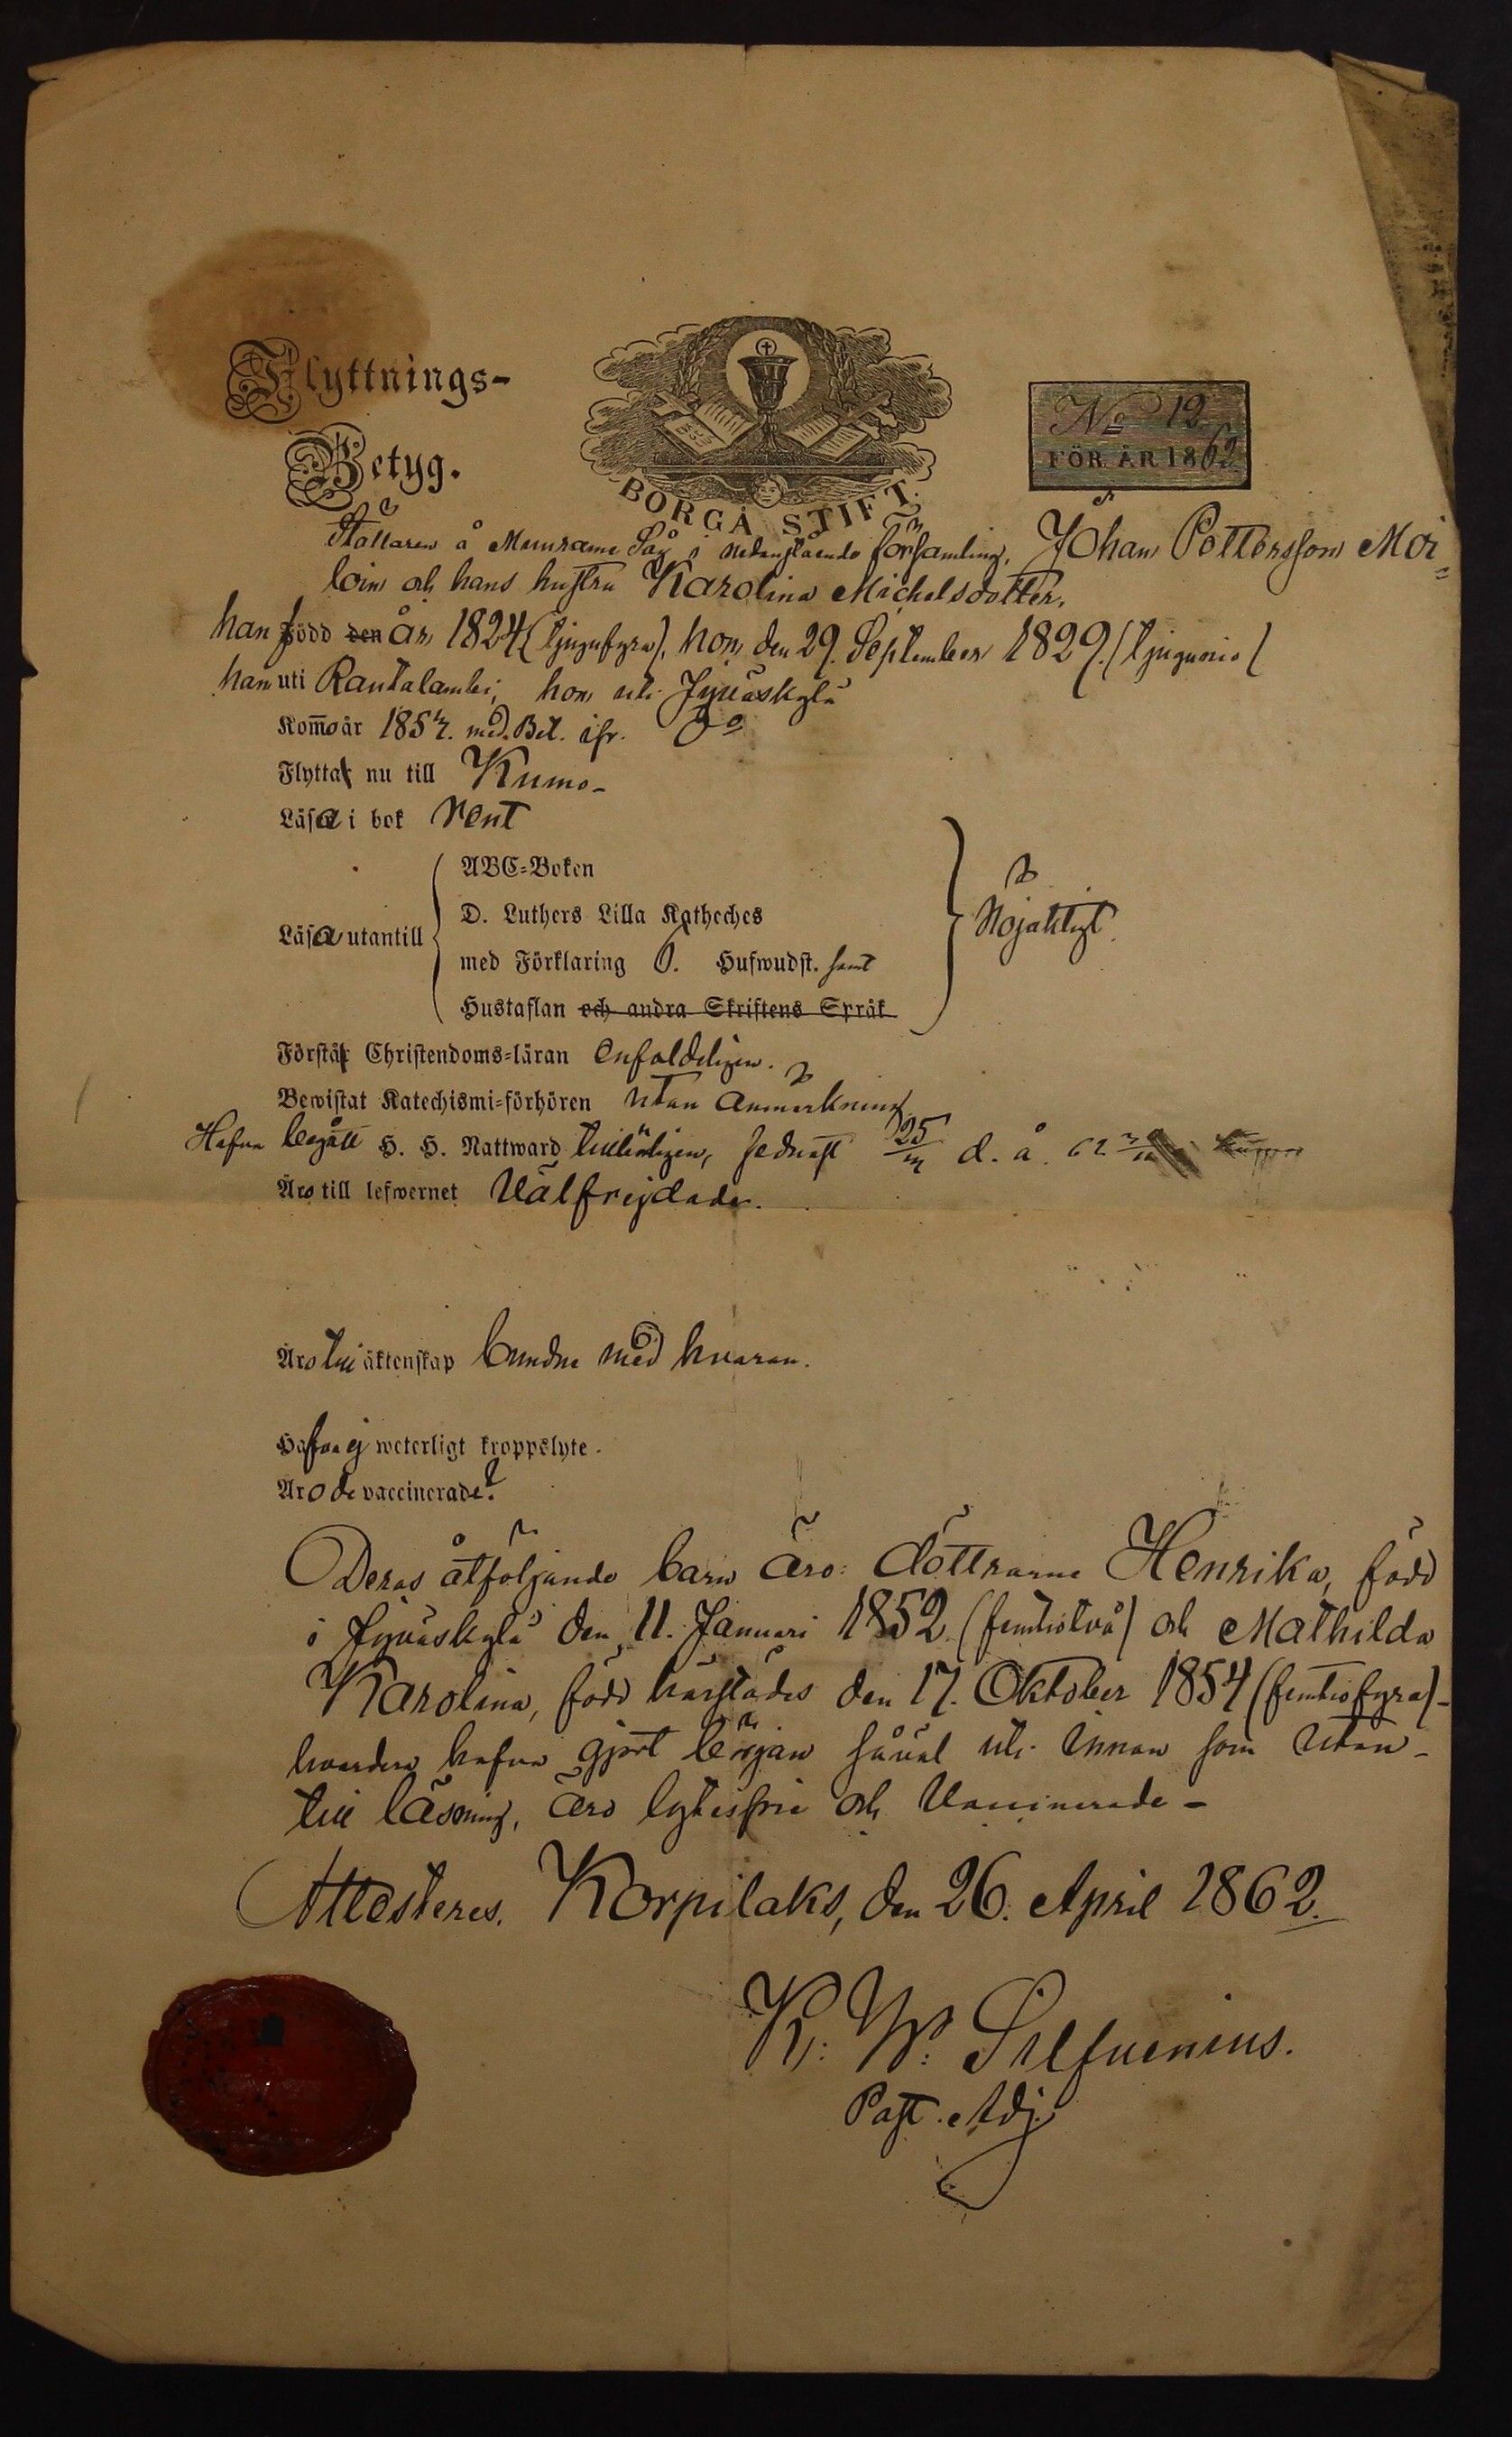 Flyttnings-
Betyg.
BORGÅ STIFT.
No 12
FÖR ÅR 1862
Ställaren å Muurame Såg i nedanstående församling, Johan Pettersson Moi=
loin och hans hustru Karolina Michelsdotter,
han född den år 1824 (tjugufyra), hon den 29. September 1829. (tjugunio)
han uti Rautalambi, hon uti Jyväskylä
Kommo år 185 med. Bet. ifr. do
Flytta nu till Kumo-
Läsa i bok rent
Läsa utantill
ABC-Boken
D. Luthers Lilla Katheches
med Förklaring 6. Hufwudst. samt
Hustaflan och andra Skriftens Språk
Nöjaktigt.
Förstå Christendoms-läran enfaldeligen.
Bewistat Katechismi-förhören utan anmärkning
Hafva begått H. H. Nattward tillbörligen, sednast 25 d. å. 62
Äro till lefwernet Välfrejdade.
Äro till äktenskap bundne med hvaran.
Hafva ej weterligt kroppslyte.
Äro de vaccinerade?
Deras åtföljande barn äro: döttrarne Henrika, född
i Jyväskylä den 11. Januari 1852 (femtiotvå) och Mathilda
Karolina, född härstädes den 17. Oktober 1854 (femtiofyra)-
hvardera hafva gjort början såväl uti innan som utan-
till läsning, äro lytesfrie och Vaccinerade-
Attesteres. Korpilaks, den 26. April 1862.
K: W: Silfvenius.
Past. Adj.